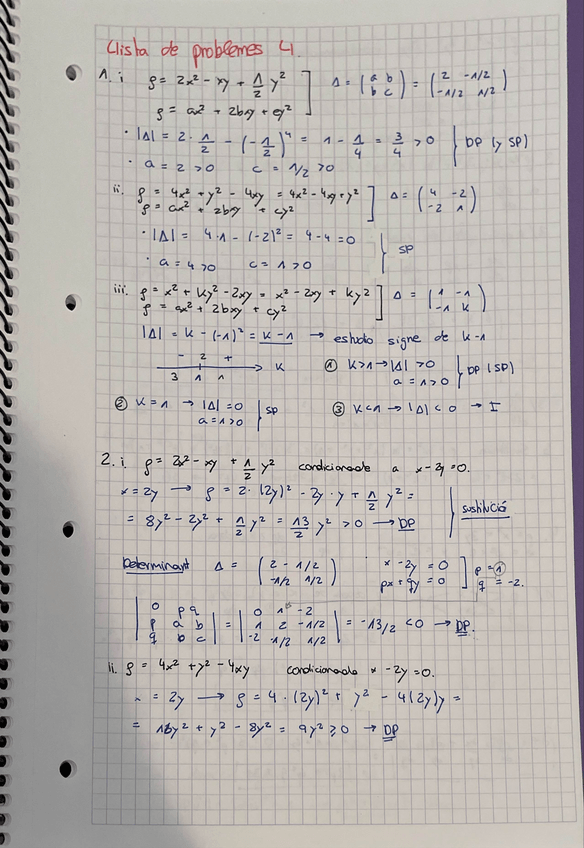 Llista de problemes 4
1. i ϱ = 2x² - xy + 1/2 y² ] Δ = (a b / b c) = (2 -1/2 / -1/2 1/2)
ϱ = ax² + 2bxy + cy²
· |Δ| = 2 · 1/2 - (-1/2)⁴ = 1 - 1/4 = 3/4 > 0 } DP (y SP)
· a = 2 > 0 c = 1/2 > 0
ii. ϱ = 4x² + y² - 4xy = 4x² - 4xy + y² ] Δ = (4 -2 / -2 1)
ϱ = ax² + 2bxy + cy²
· |Δ| = 4·1 - (-2)² = 4 - 4 = 0 } SP
· a = 4 > 0 c = 1 > 0
iii. ϱ = x² + Ky² - 2xy = x² - 2xy + Ky² ] Δ = (1 -1 / -1 K)
ϱ = ax² + 2bxy + cy²
|Δ| = K - (-1)² = K - 1 → estudio signe de K-1
- 2 + K
3 1 1
① K>1 → |Δ| > 0 } DP (SP)
a = 1 > 0
② K = 1 → |Δ| = 0 | SP
a = 1 > 0
③ K<1 → |Δ| < 0 → I
2. i. ϱ = 2x² - xy + 1/2 y² condicionada a x - 2y = 0.
x = 2y → ϱ = 2·(2y)² - 2y·y + 1/2 y² =
= 8y² - 2y² + 1/2 y² = 13/2 y² > 0 → DP
} sustitució
Determinant Δ = (2 - 1/2 / -1/2 1/2) x - 2y = 0 ] p = 1
px + qy = 0 q = -2.
|0 p q / p a b / q b c| = |0 1 -2 / 1 2 -1/2 / -2 -1/2 1/2| = -13/2 < 0 → DP.
ii. ϱ = 4x² + y² - 4xy condicionada x - 2y = 0.
= 2y → ϱ = 4·(2y)² + y² - 4(2y)y =
= 16y² + y² - 8y² = 9y² ≥ 0 → DP